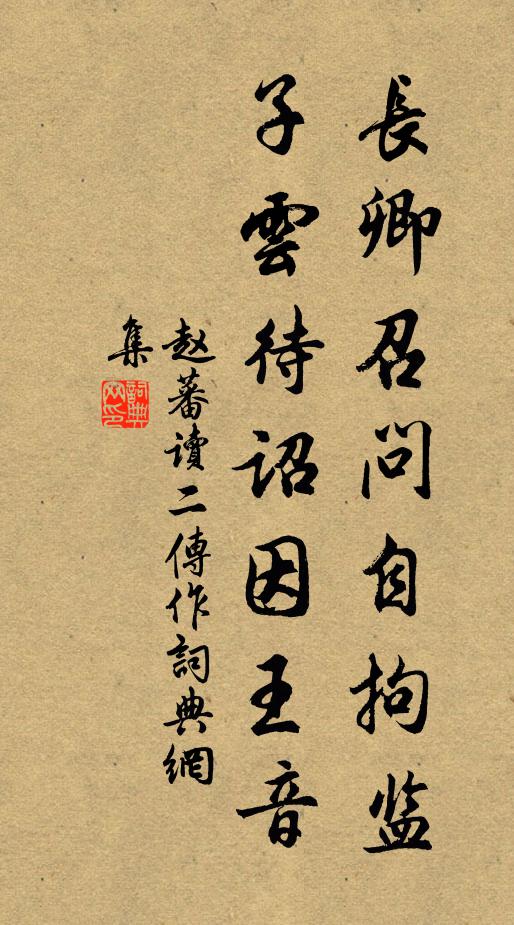 長卿召問自拘监
子雲待詔因王音
赵蕃讀二傳作詞典網
集
詞典网印